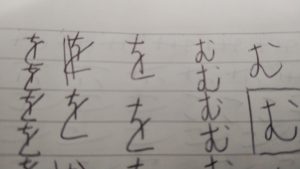 を を む む
を む
を を を む む
を む